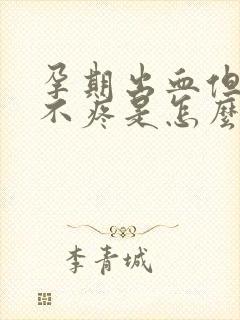 孕期出血但
不疼是怎麼
李青城